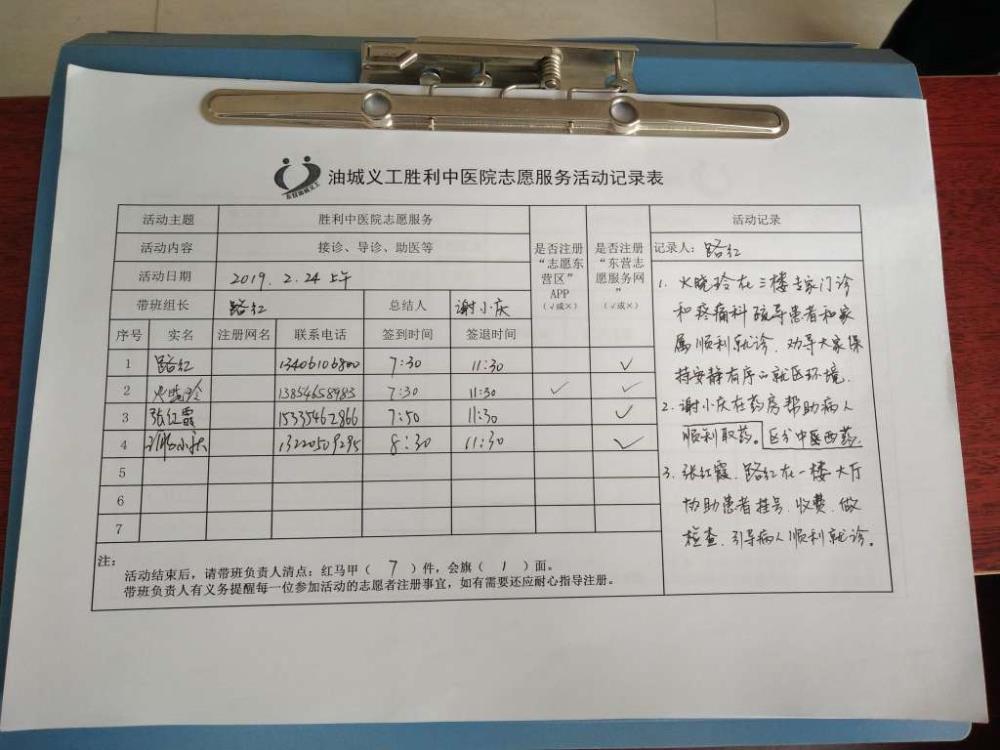 东营油城义工
油城义工胜利中医院志愿服务活动记录表
活动主题 胜利中医院志愿服务
活动内容 接诊、导诊、助医等
活动日期 2019.2.24上午
带班组长 路红 总结人 谢小庆
是否注册“志愿东营区”APP（√或×）
是否注册“东营志愿服务网”（√或×）
序号 实名 注册网名 联系电话 签到时间 签退时间
1 路红 13406106800 7:30 11:30 √
2 火晓玲 13854658983 7:30 11:30 √ √
3 张红霞 15335462866 7:50 11:30 √
4 谢小庆 13220509295 8:30 11:30 √
5
6
7
注：
活动结束后，请带班负责人清点：红马甲（ 7 ）件，会旗（ 1 ）面。
带班负责人有义务提醒每一位参加活动的志愿者注册事宜，如有需要还应耐心指导注册。
活动记录
记录人：路红
1. 火晓玲在三楼专家门诊
和疼痛科疏导患者和家
属顺利就诊、劝导大家保
持安静有序的就医环境.
2. 谢小庆在药房帮助病人
顺利取药。区分中医西药.
3. 张红霞、路红在一楼大厅
协助患者挂号、收费、做
检查、引导病人顺利就诊。